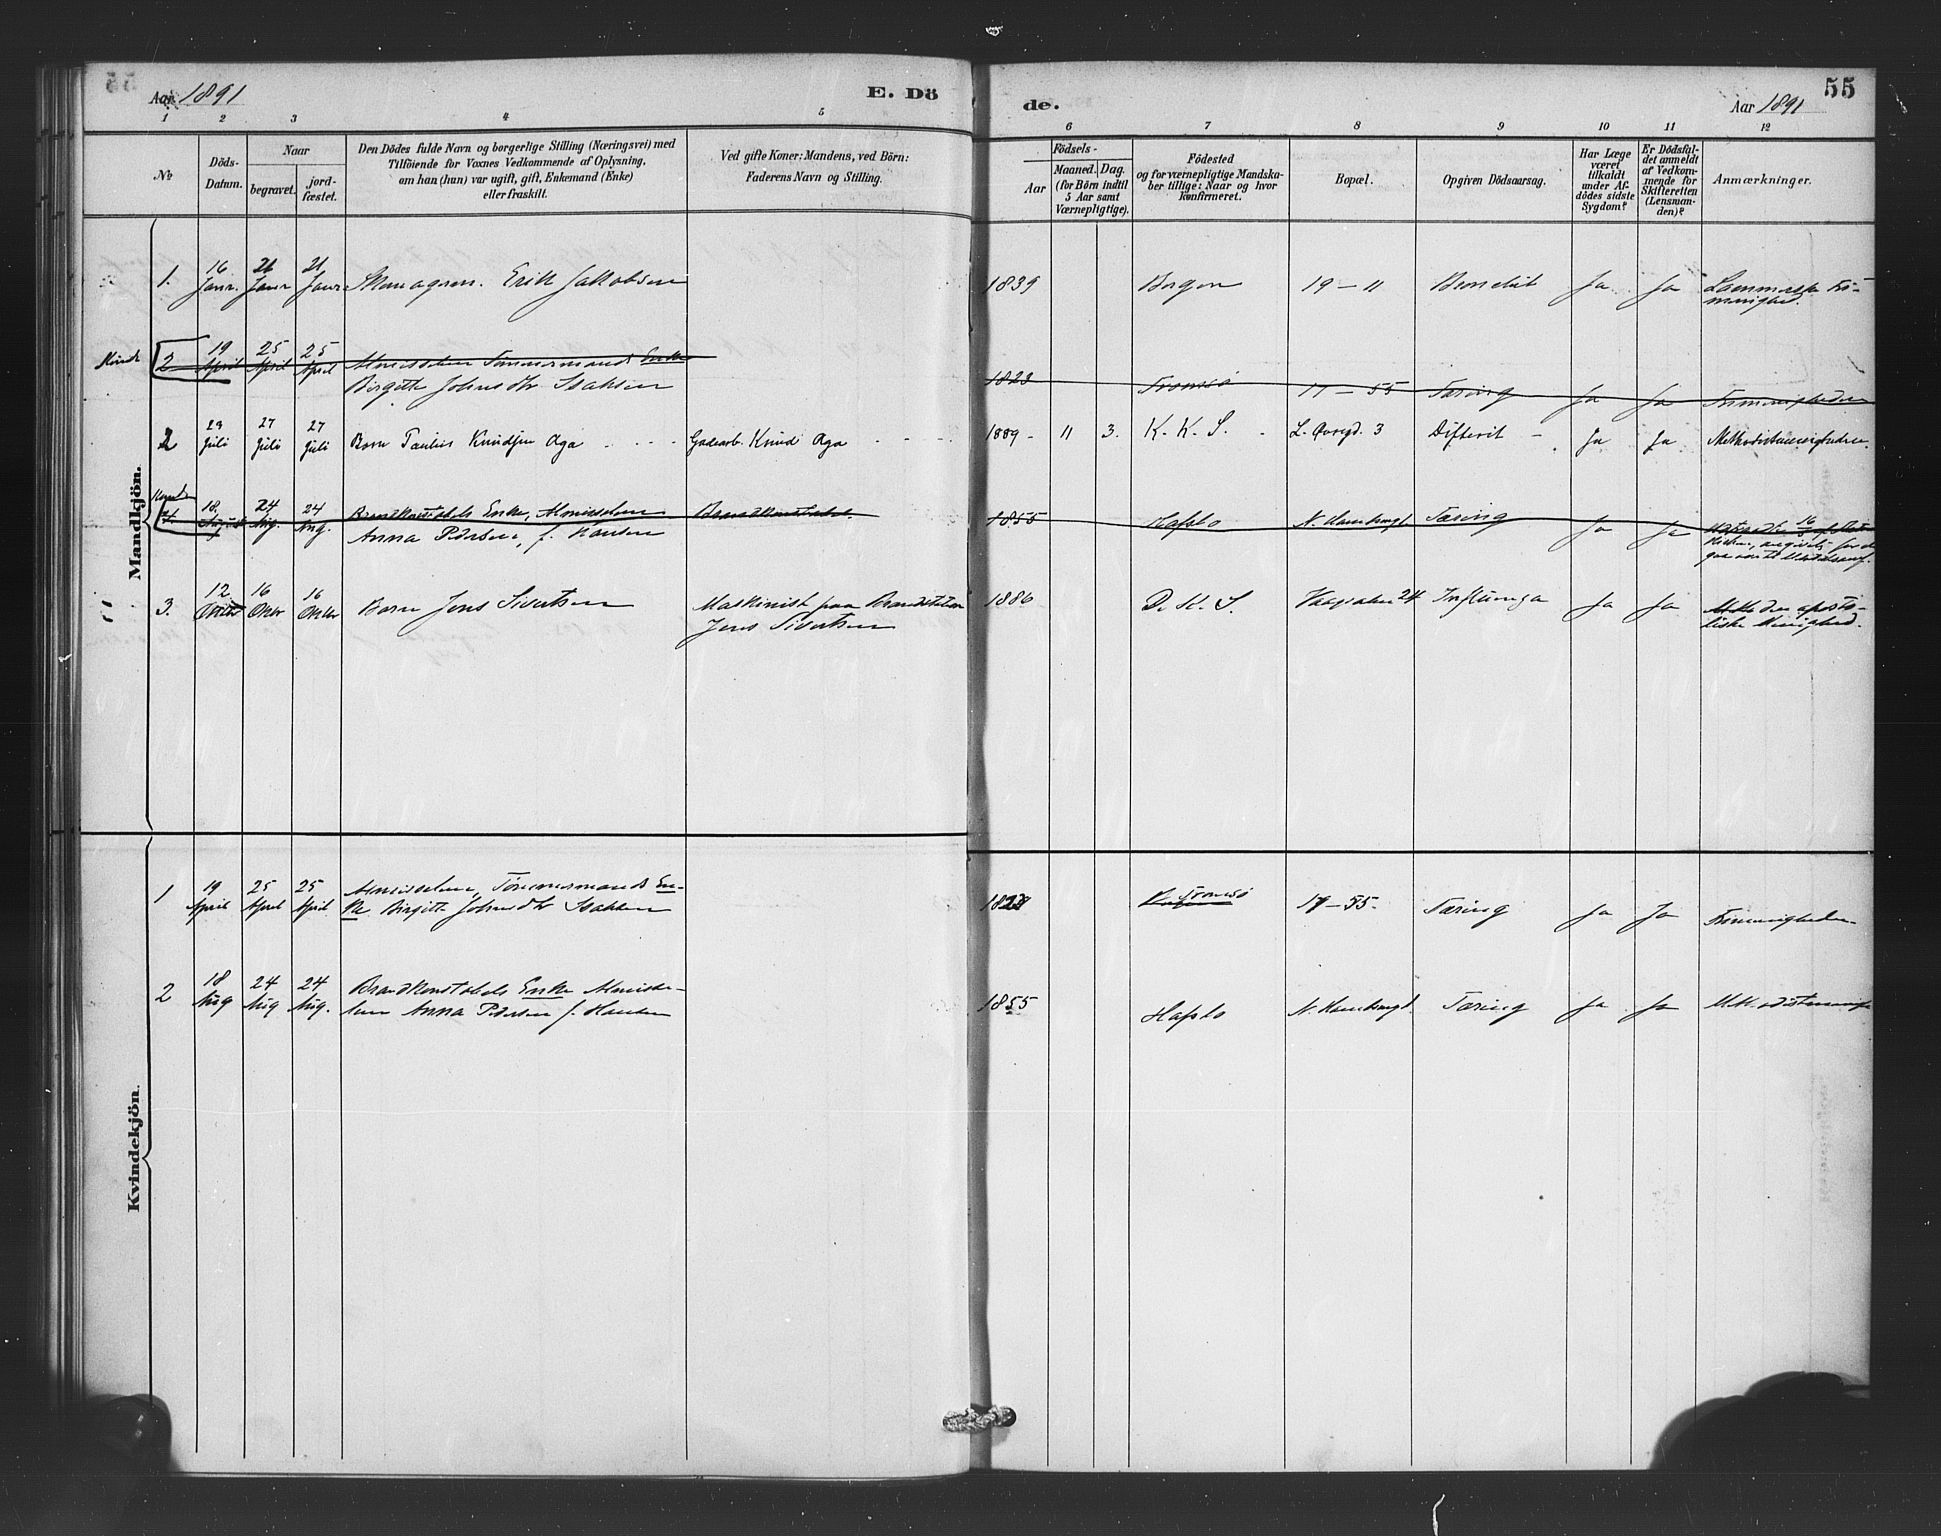 Aar 1891
E. Dö
de.
Aar 1891
55
1 2 3 4 5
6 7 8 9 10 11 12
№
Döds-
Datum.
Naar
begravet.
jord-
fæstet.
Den Dödes fulde Navn og borgerlige Stilling (Næringsvei) med
Tilföiende for Voxnes Vedkommende af Oplysning,
om han (hun) var ugift, gift, Enkemand (Enke)
eller fraskilt.
Ved gifte Koner: Mandens, ved Börn:
Faderens Navn og Stilling.
Födsels-
Aar
Maaned. Dag.
(for Börn indtil
5 Aar samt
Værnepligtige).
Födested
og for værnepligtige Mandska-
ber tillige: Naar og hvor
konfirmeret.
Bopæl.
Opgiven Dödsaarsag.
Har Læge
været
tilkaldt
under Af-
dödes sidste
Sygdom?
Er Dödsfal-
det anmeldt
af Vedkom-
mende for
Skifteretten
(Lensman-
den)?
Anmærkninger.
Mandkjön.
1. 16 Janr. 21 Janr 21 Janr Erik Jakobsen 1839 Bergen 19 – 11 Ja Ja
2 19 April 25 April 25 April Almisselem Tömmermands Enke
Birgitte Johnsdtr Isaksen
1823 Tromsö 17 – 55 Tæring Ja Ja Frimenigheden
2 23 Juli 27 Juli 27 Juli Barn Paulus Knudsen Aga Gadearb. Knud Aga 1889 11 3. K. K. S. L. Øvregd. 3 Difterit Ja Ja Methodistmenigheden
4. 18. August 24 Aug. 24 Aug. Brandkonstabels Enke, Almisselem Brandkonstabel
Anna Pedersen, f. Hansen
1855 Hafslo Tæring Ja Ja
3. 12 Oktbr 16 Oktbr 16 Oktbr Barn Jens Sivertsen Maskinist paa Brandstation
Jens Sivertsen
1886 D. K. S. 24 Influenza Ja Ja den aposto-
liske Menighed.
Kvindekjön.
1 19 April 25 April 25 April Almisselem, Tömmermands En-
ke Birgitte Johnsdtr Isaksen
1823 Tromsö 17 – 55. Tæring Ja Ja Frimenigheden
2 18 Aug 24 Aug 24 Aug. Brandkonstabels Enke Almisse-
lem Anna Pedersen f. Hansen
1855 Hafslo Tæring Ja Ja